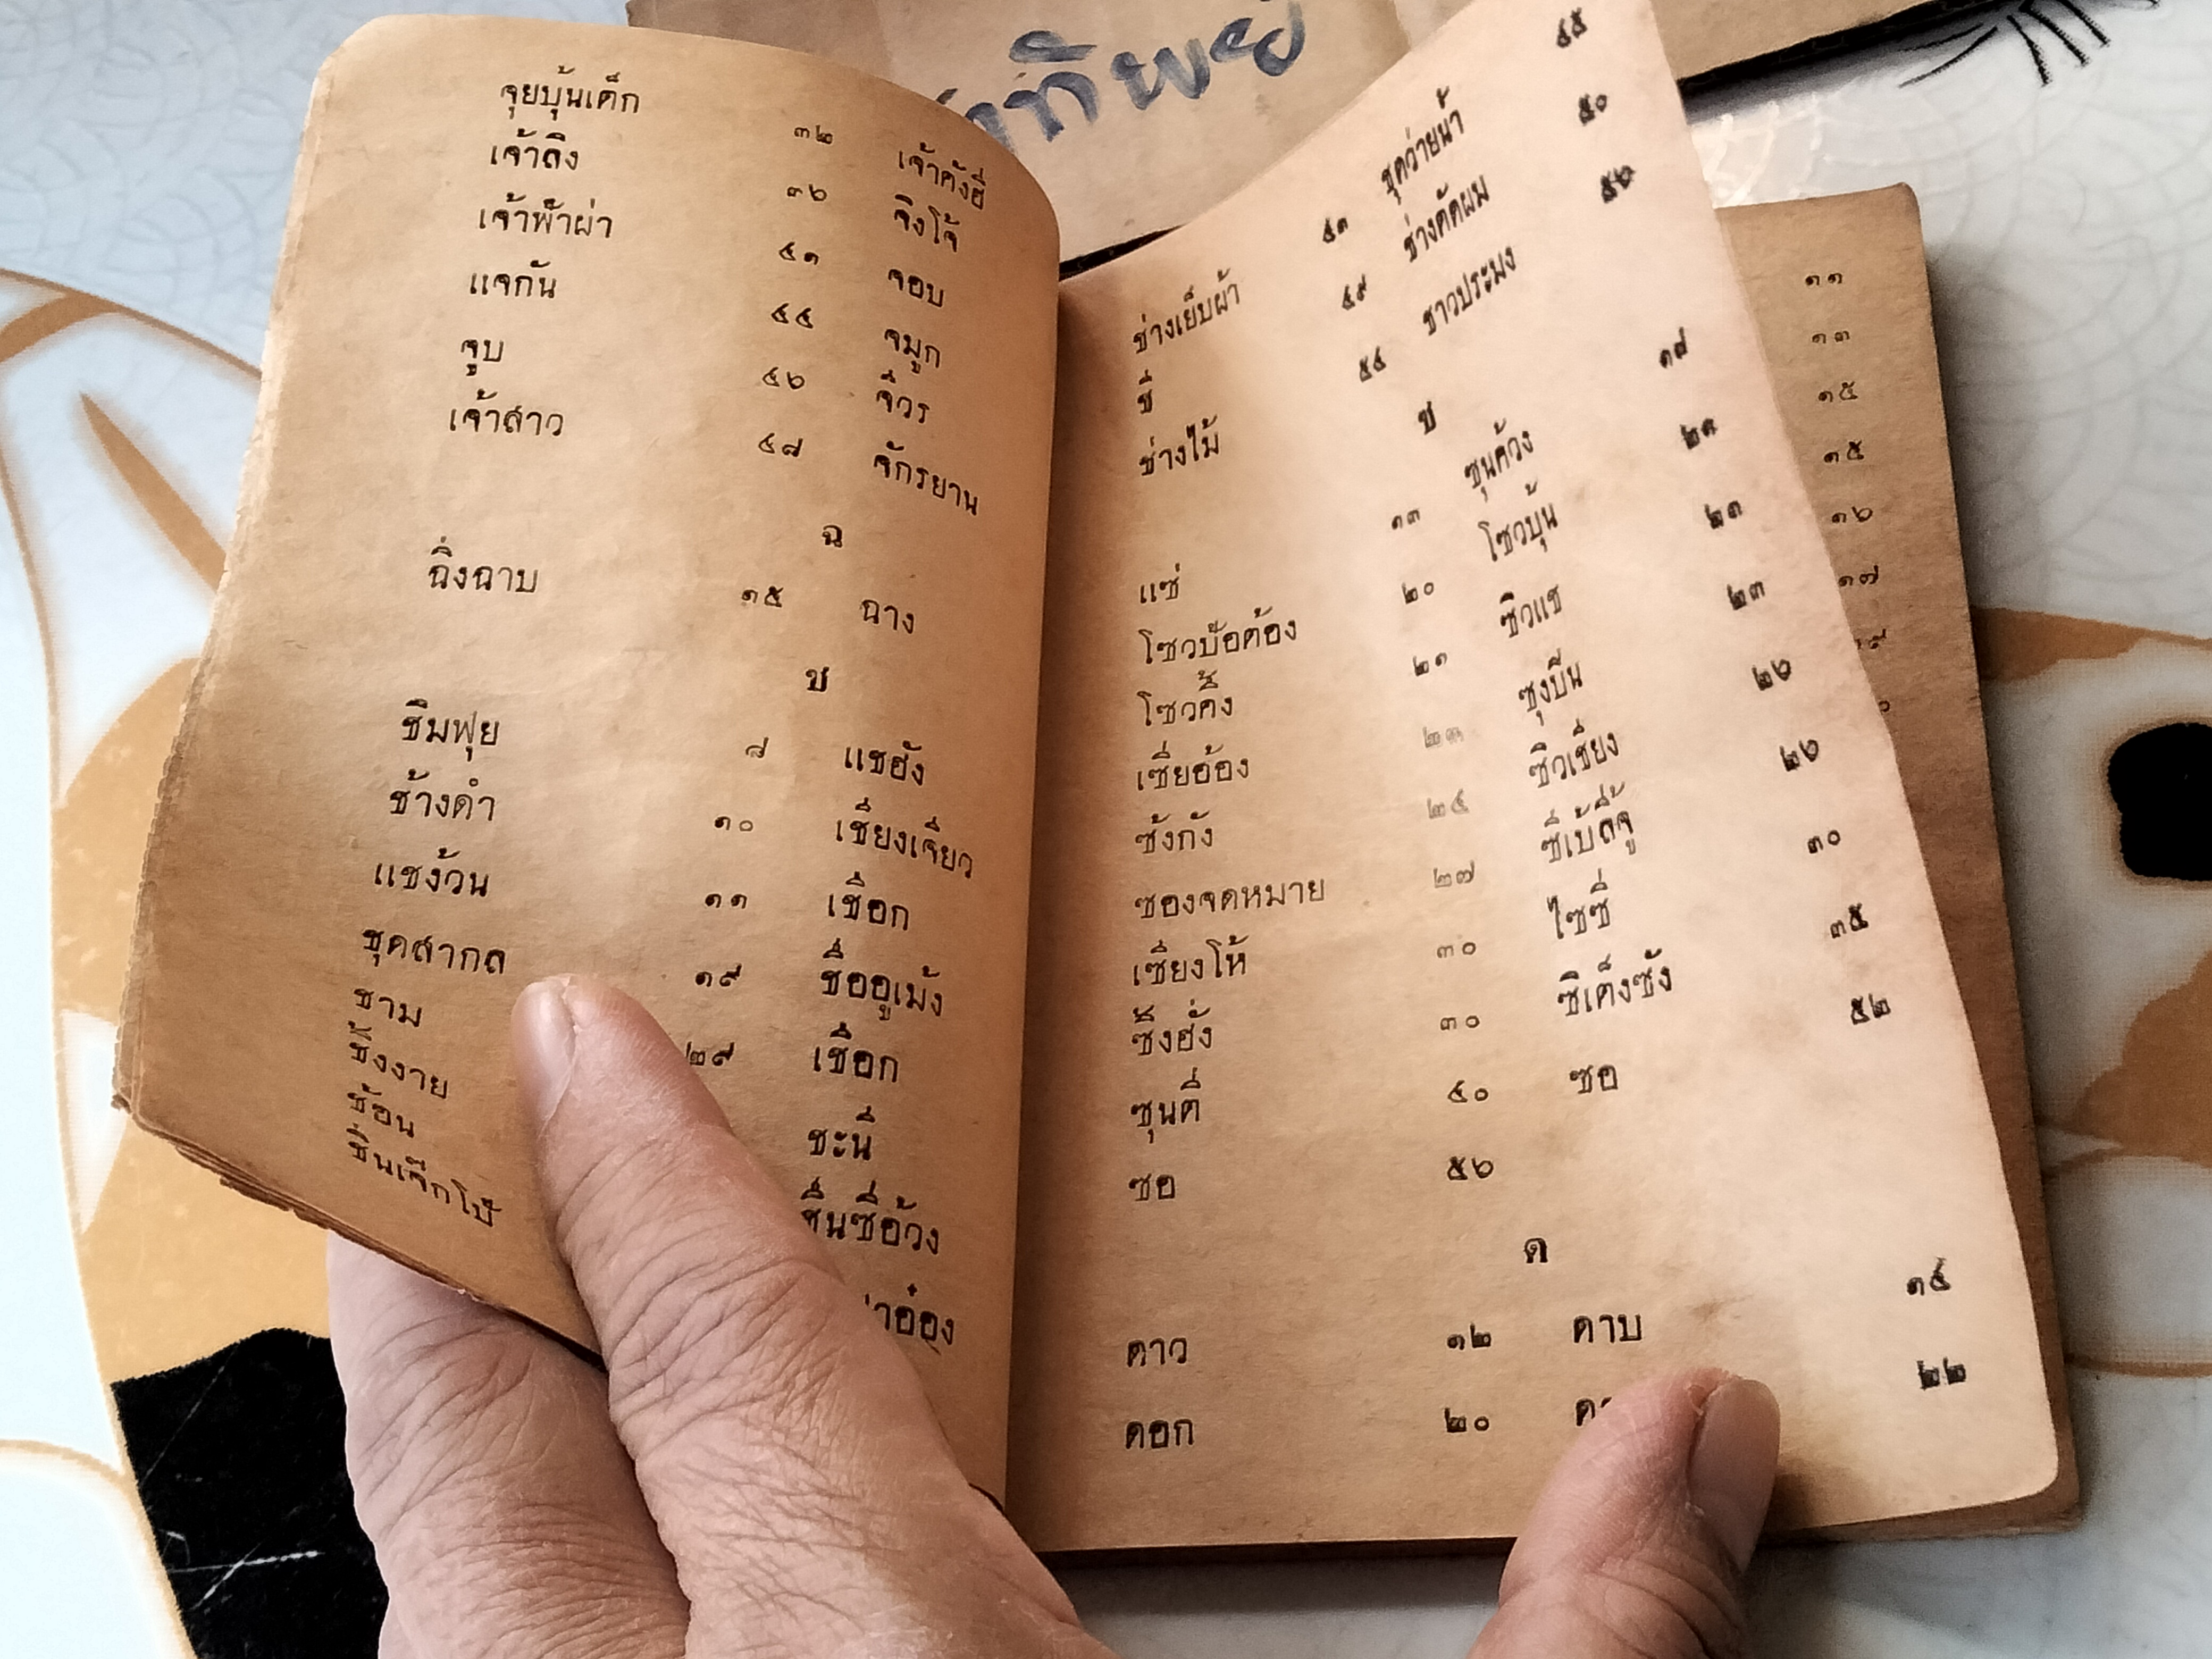 จุยบุ้นเค็ก ๓๒ เจ้าคังฮี
เจ้าลิง ๓๖ จิงโจ้
เจ้าพ้าผ่า ๔๑ จอบ
แจกัน ๔๔ จมูก
จูบ ๔๖ จีวร
เจ้าสาว ๔๘ จักรยาน
ฉ
ฉิ่งฉาบ ๑๕ ฉาง
ช
ชิมฟุย ๘ แชฮัง
ช้างดำ ๑๐ เชียงเจียว
แชง้วน ๑๑ เชือก
ชุดสากล ๑๙ ชื่ออูเม้ง
ชาม ๒๙ เชือก
ช้อน ชะนี
ชินซีอ้วง
๔๕
ช่างเย็บผ้า ๔๓ ชุดว่ายน้ำ ๕๐
ชี ๔๙ ช่างตัดผม ๕๖
ช่างไม้ ๕๔ ชาวประมง
ซ
แซ่ ๑๓ ซุนด้วง ๑๗
โซวบ๊อค้อง ๒๐ โซวบุ้น ๒๑
๒๑ ซิวแช ๒๓
เซี่ยอ้อง ๒๓ ซุงปิน ๒๓
ซังกัง ๒๔ ซิวเชียง ๒๖
ซองจดหมาย ๒๗ ๒๖
เซียงโห้ ๓๐ ไซซี ๓๐
ซิ้งฮั่ง ๓๐ ซิเค็งซัง ๓๕
ซุนคี่ ๔๐ ซอ ๕๒
ซอ ๕๖
ด
ดาว ๑๒ ดาบ ๑๔
ดอก ๒๐ ๒๒
๑๑
๑๓
๑๕
๑๕
๑๖
๑๗